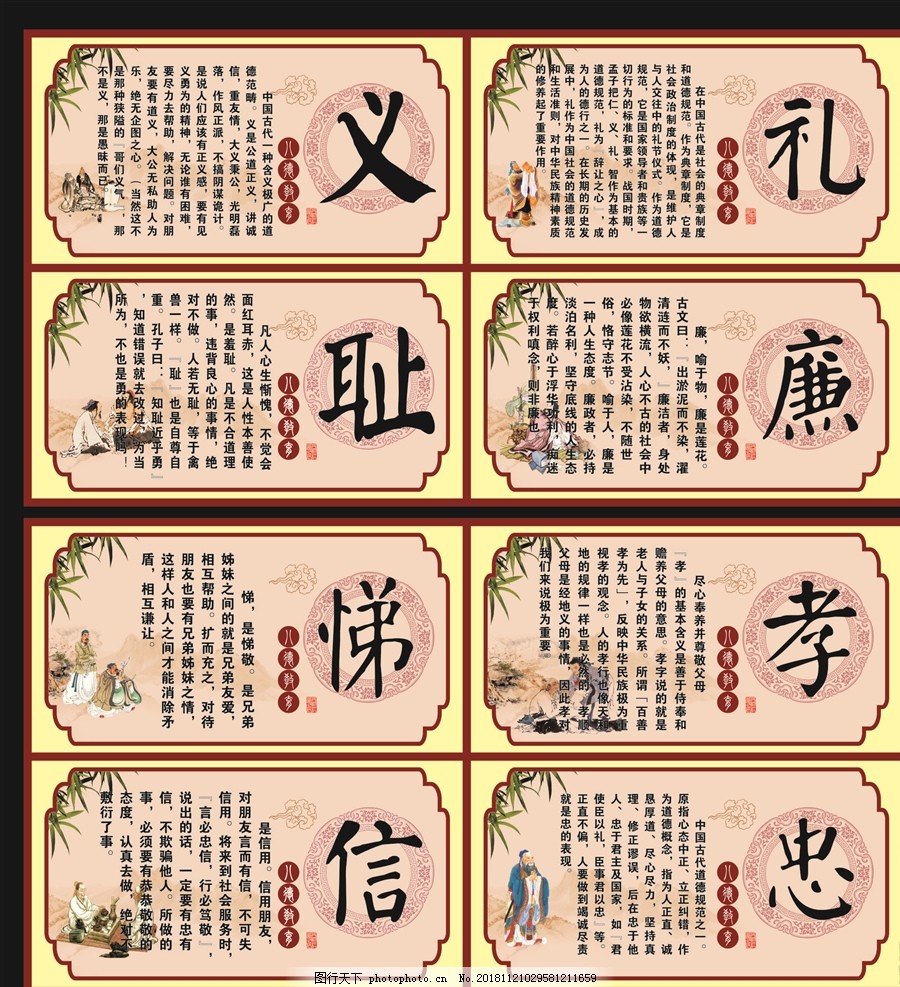 礼
八德教育
在中国古代是社会的典章制度
和道德规范。作为典章制度，它是
社会政治制度的体现，是维护人
与人交往中的礼节仪式。作为道德
规范，它是国家领导者和贵族等一
切行为的标准和要求。战国时期，
孟子把仁、义、礼、智作为基本的
道德规范，礼为“辞让之心”，成
为人的德行之一。在长期的历史发
展中，礼作为中国社会的道德规范
和生活准则，对中华民族精神素质
的修养起了重要作用。
义
八德教育
中国古代一种含义极广的道
德范畴。义是公道正义，讲诚
信，重友情，大义秉公，光明磊
落，作风正派，不搞阴谋诡计。
是说人们应该有正义感，要有见
义勇为的精神，无论谁有困难，
要尽力去帮助，解决问题。对朋
友要有道义，大公无私助人为
乐，绝无企图之心。（当然这不
是那种狭隘的『哥们义气』，那
不是义，那是愚昧而已
廉
八德教育
廉，喻于物，廉是莲花。
古文曰：『出淤泥而不染，濯
清涟而不妖，』廉洁者，身处
物欲横流，人心不古的社会中
必像莲花不受沾染，不随世
俗，恪守志节。喻于人，廉是
一种人生态度。廉政者，必持
淡泊名利，坚守底线的人生态
度。若醉心于浮华功利，痴迷
于权利嗔念，则非廉也。
耻
八德教育
凡人心生惭愧，不觉会
面红耳赤，这是人性本善使
然。是羞耻。凡是不合道理
的事，违背良心的事情，绝
对不做。人若无耻，等于禽
兽一样。『耻』也是自尊自
重。孔子曰：『知耻近乎勇』
，知道错误就去改过，为当
所为，不也是勇的表现吗！
孝
八德教育
尽心奉养并尊敬父母
『孝』的基本含义是善于侍奉和
赡养父母的意思。孝字说的就是
老人与子女的关系。所谓『百善
孝为先』，反映中华民族极为重
视孝的观念。人的孝行也像天和
地的规律一样也是必然的，孝顺
父母是经地义的事情，因此孝对
我们来说极为重要。
悌
八德教育
悌，是悌敬。是兄弟
姊妹之间的就是兄弟友爱，
相互帮助。扩而充之，对待
朋友也要有兄弟姊妹之情，
这样人和人之间才能消除矛
盾，相互谦让。
忠
八德教育
中国古代道德规范之一。
原指心态中正、立正纠错，作
为道德概念，指为人正直、诚
恳厚道、尽心尽力，坚持真
理、修正谬误，后在忠于他
人、忠于君主及国家，如『君
使臣以礼，臣事君以忠』等。
正直不偏，人要做到竭诚尽责
就是忠的表现。
信
八德教育
是信用。信用朋友，
对朋友言而有信，不可失
信用。将来到社会服务时，
『言必忠信，行必笃敬』，
说出的话，一定要有忠有
信，不欺骗他人。所做的
事，必须要有恭恭敬敬的
态度，认真去做，绝对不
敷衍了事。
图行天下 photophoto.cn No.20181121029581211659